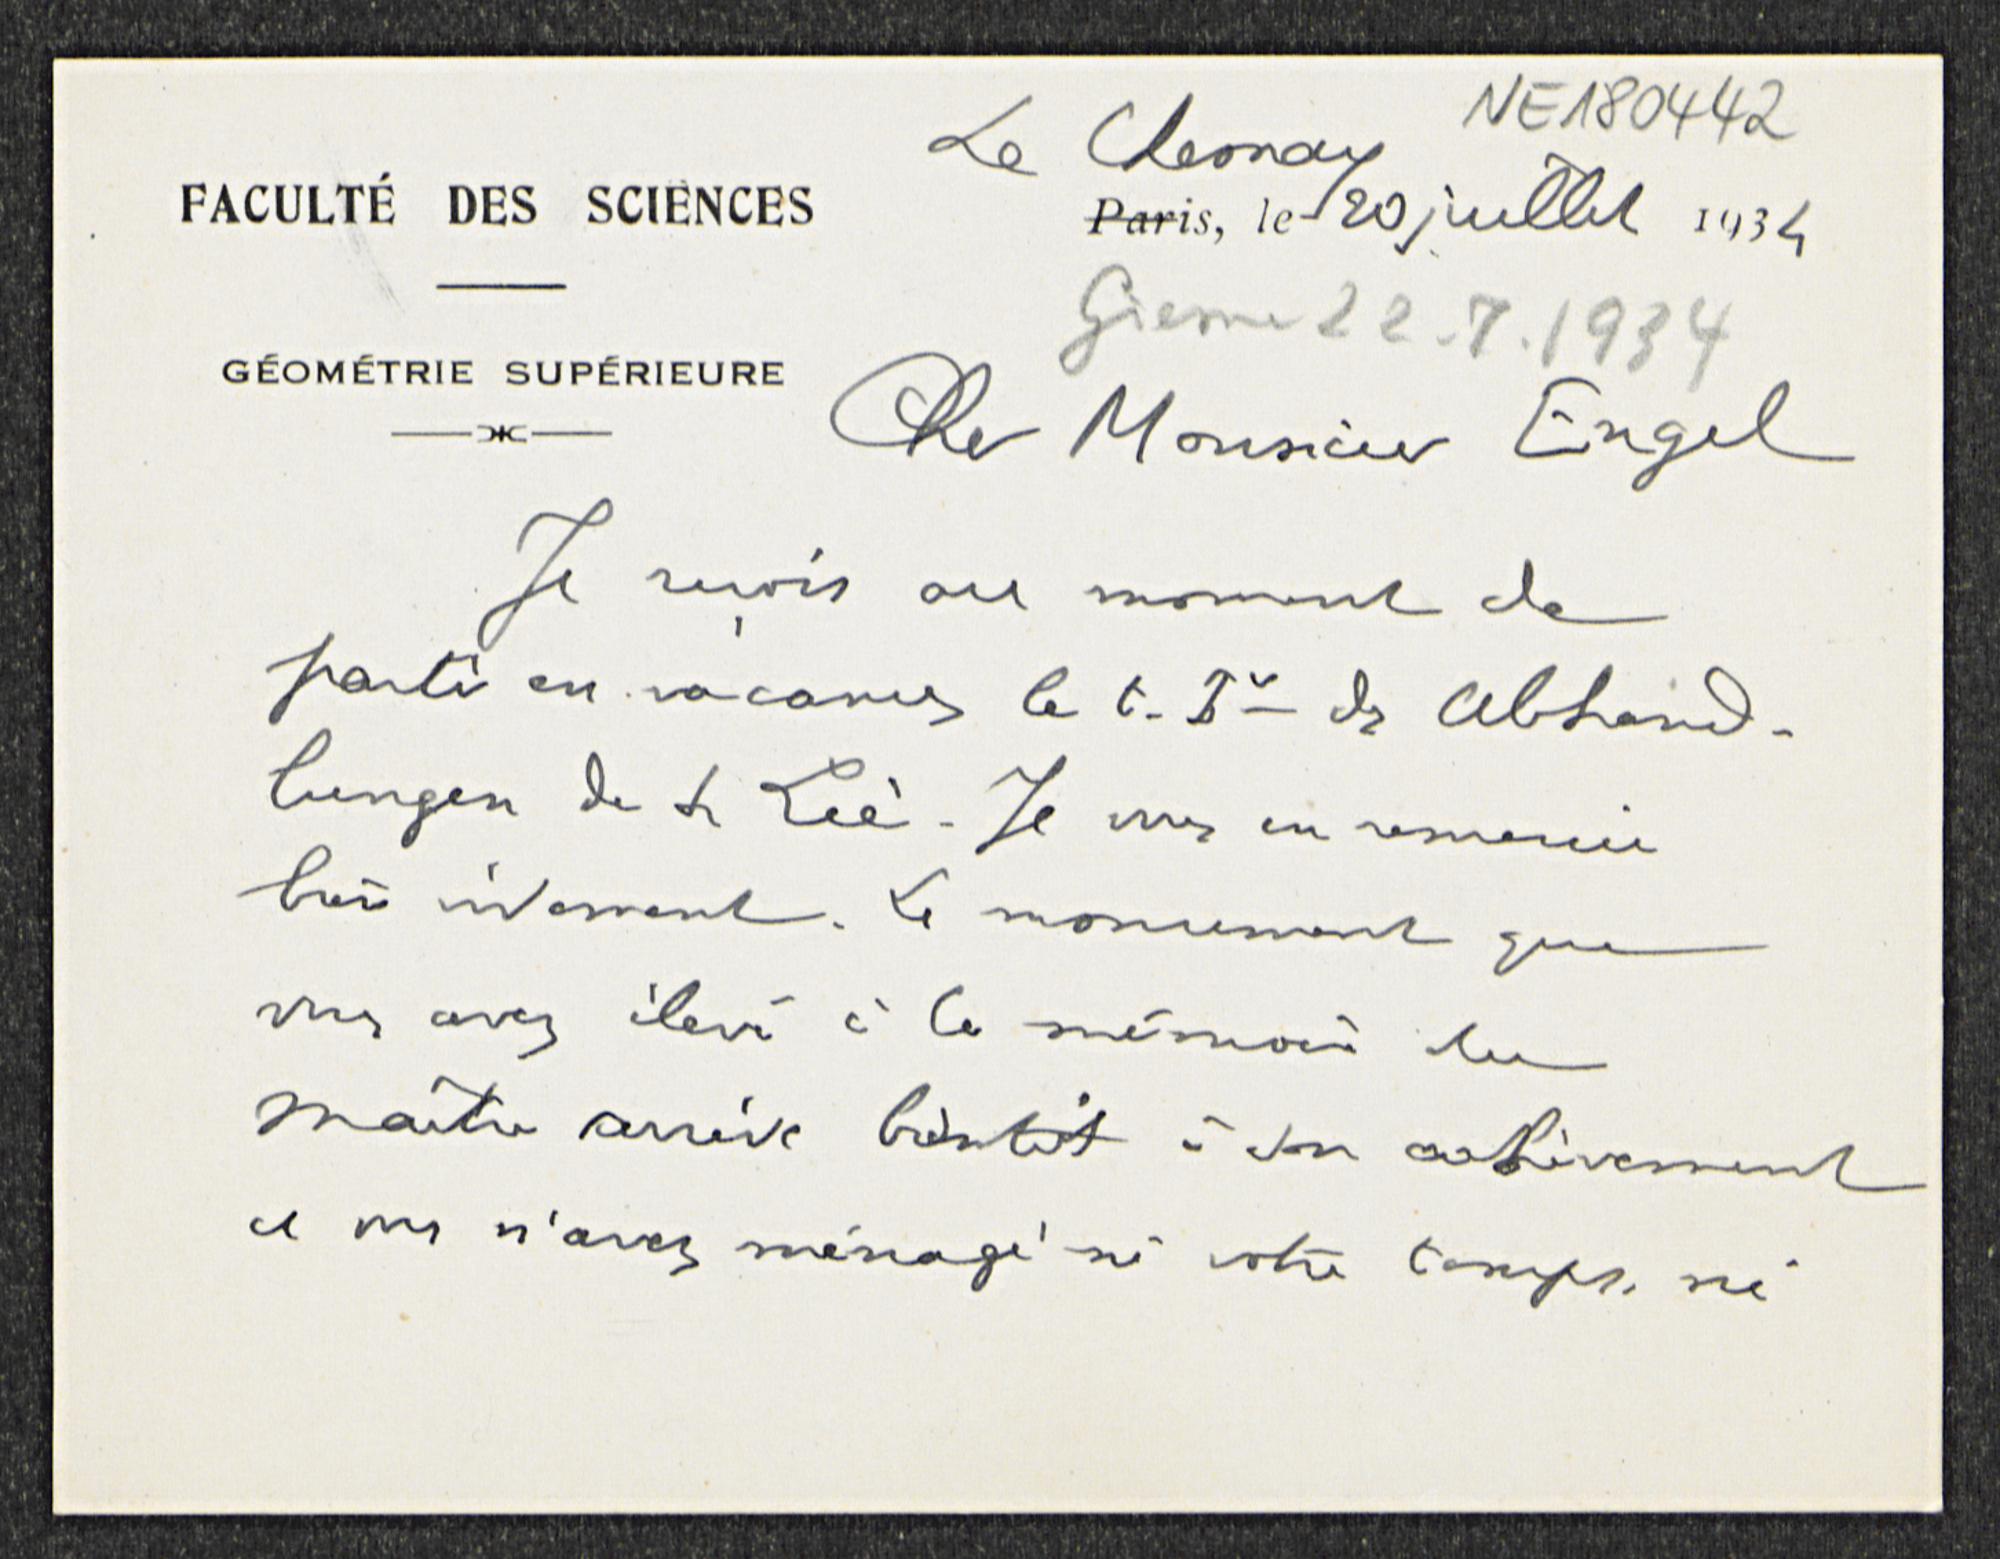 NE180442
Le Chesnay
FACULTÉ DES SCIENCES
Paris, le 20 juillet 1934
Giessen 22.7.1934
GÉOMÉTRIE SUPÉRIEURE
Cher Monsieur Engel
Je reçois au moment de
partir en vacances le t. des Abhand-
lungen de S. Lie. Je vous en remercie
bien vivement. Le monument que
vous avez élevé à la mémoire du
maître arrive bientôt à son achèvement
et vous n'avez ménagé ni votre temps, ni